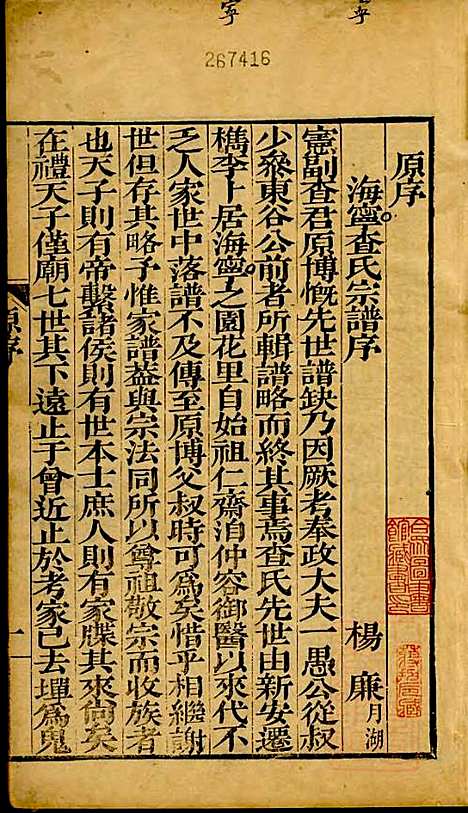 寧
寧
267416
原序
海寧查氏宗譜序
楊廉月湖
憲副查君原博慨先世譜缺乃因厥考奉政大夫一愚公從叔
少叅東谷公前者所輯譜略而終其事焉查氏先世由新安遷
檇李卜居海寧之園花里自始祖仁齋洎仲容御醫以來代不
乏人家世中落譜不及傳至原博父叔時可為矣惜乎相繼謝
世但存其略予惟家譜葢與宗法同所以尊祖敬宗而收族者
也天子則有帝繫諸侯則有世本士庶人則有家牒其來尚矣
在禮天子僅廟七世其下遠止于曾近止於考家已去墠為鬼
原序
一